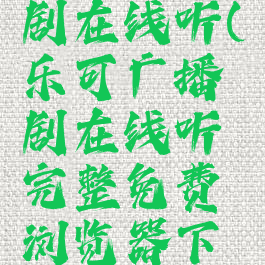 剧在线听(
乐可广播
剧在线听
完整免费
浏览器下